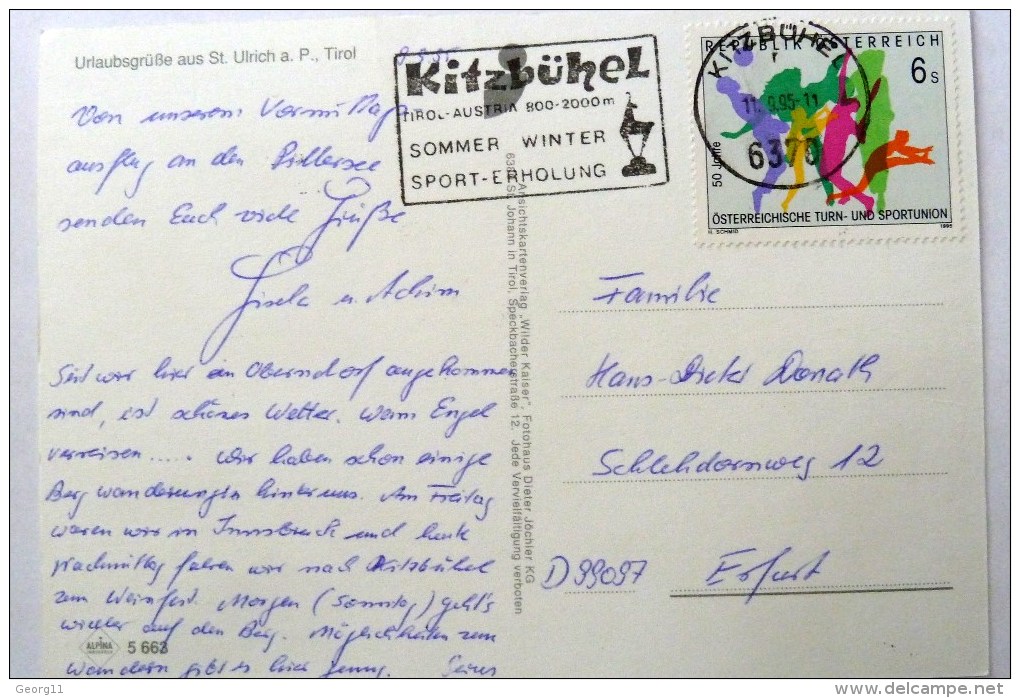 Urlaubsgrüße aus St. Ulrich a. P., Tirol
9.9.95
Von unserem Vormittags-
ausflug an den Pillersee
senden Euch viele Grüße
Gisela u. Achim
Seit wir hier in Oberndorf angekommen
sind, ist schönes Wetter. Wenn Engel
verreisen..... Wir haben schon einige
Bergwanderungen hinter uns. Am Freitag
waren wir in Innsbruck und heute
Nachmittag fahren wir nach Kitzbühel
zum Weinfest. Morgen (Sonntag) geht's
wieder auf den Berg. Möglichkeiten zum
Wandern gibt es hier genug.
ALPINA
5 663
Kitzbühel
TIROL-AUSTRIA 800-2000m
SOMMER WINTER
SPORT-ERHOLUNG
KITZBÜHEL
11.9.95-11
6370
REPUBLIK ÖSTERREICH
6 s
50 Jahre
ÖSTERREICHISCHE TURN- UND SPORTUNION
H. SCHMID
1995
Ansichtskartenverlag „Wilder Kaiser“, Fotohaus Dieter Jöchler KG
St. Johann in Tirol, Speckbacherstraße 12. Jede Vervielfältigung verboten
Familie
Hans-Dieter Donath
Schlehdornweg 12
D 99097 Erfurt
Georg11
www.delcampe.net